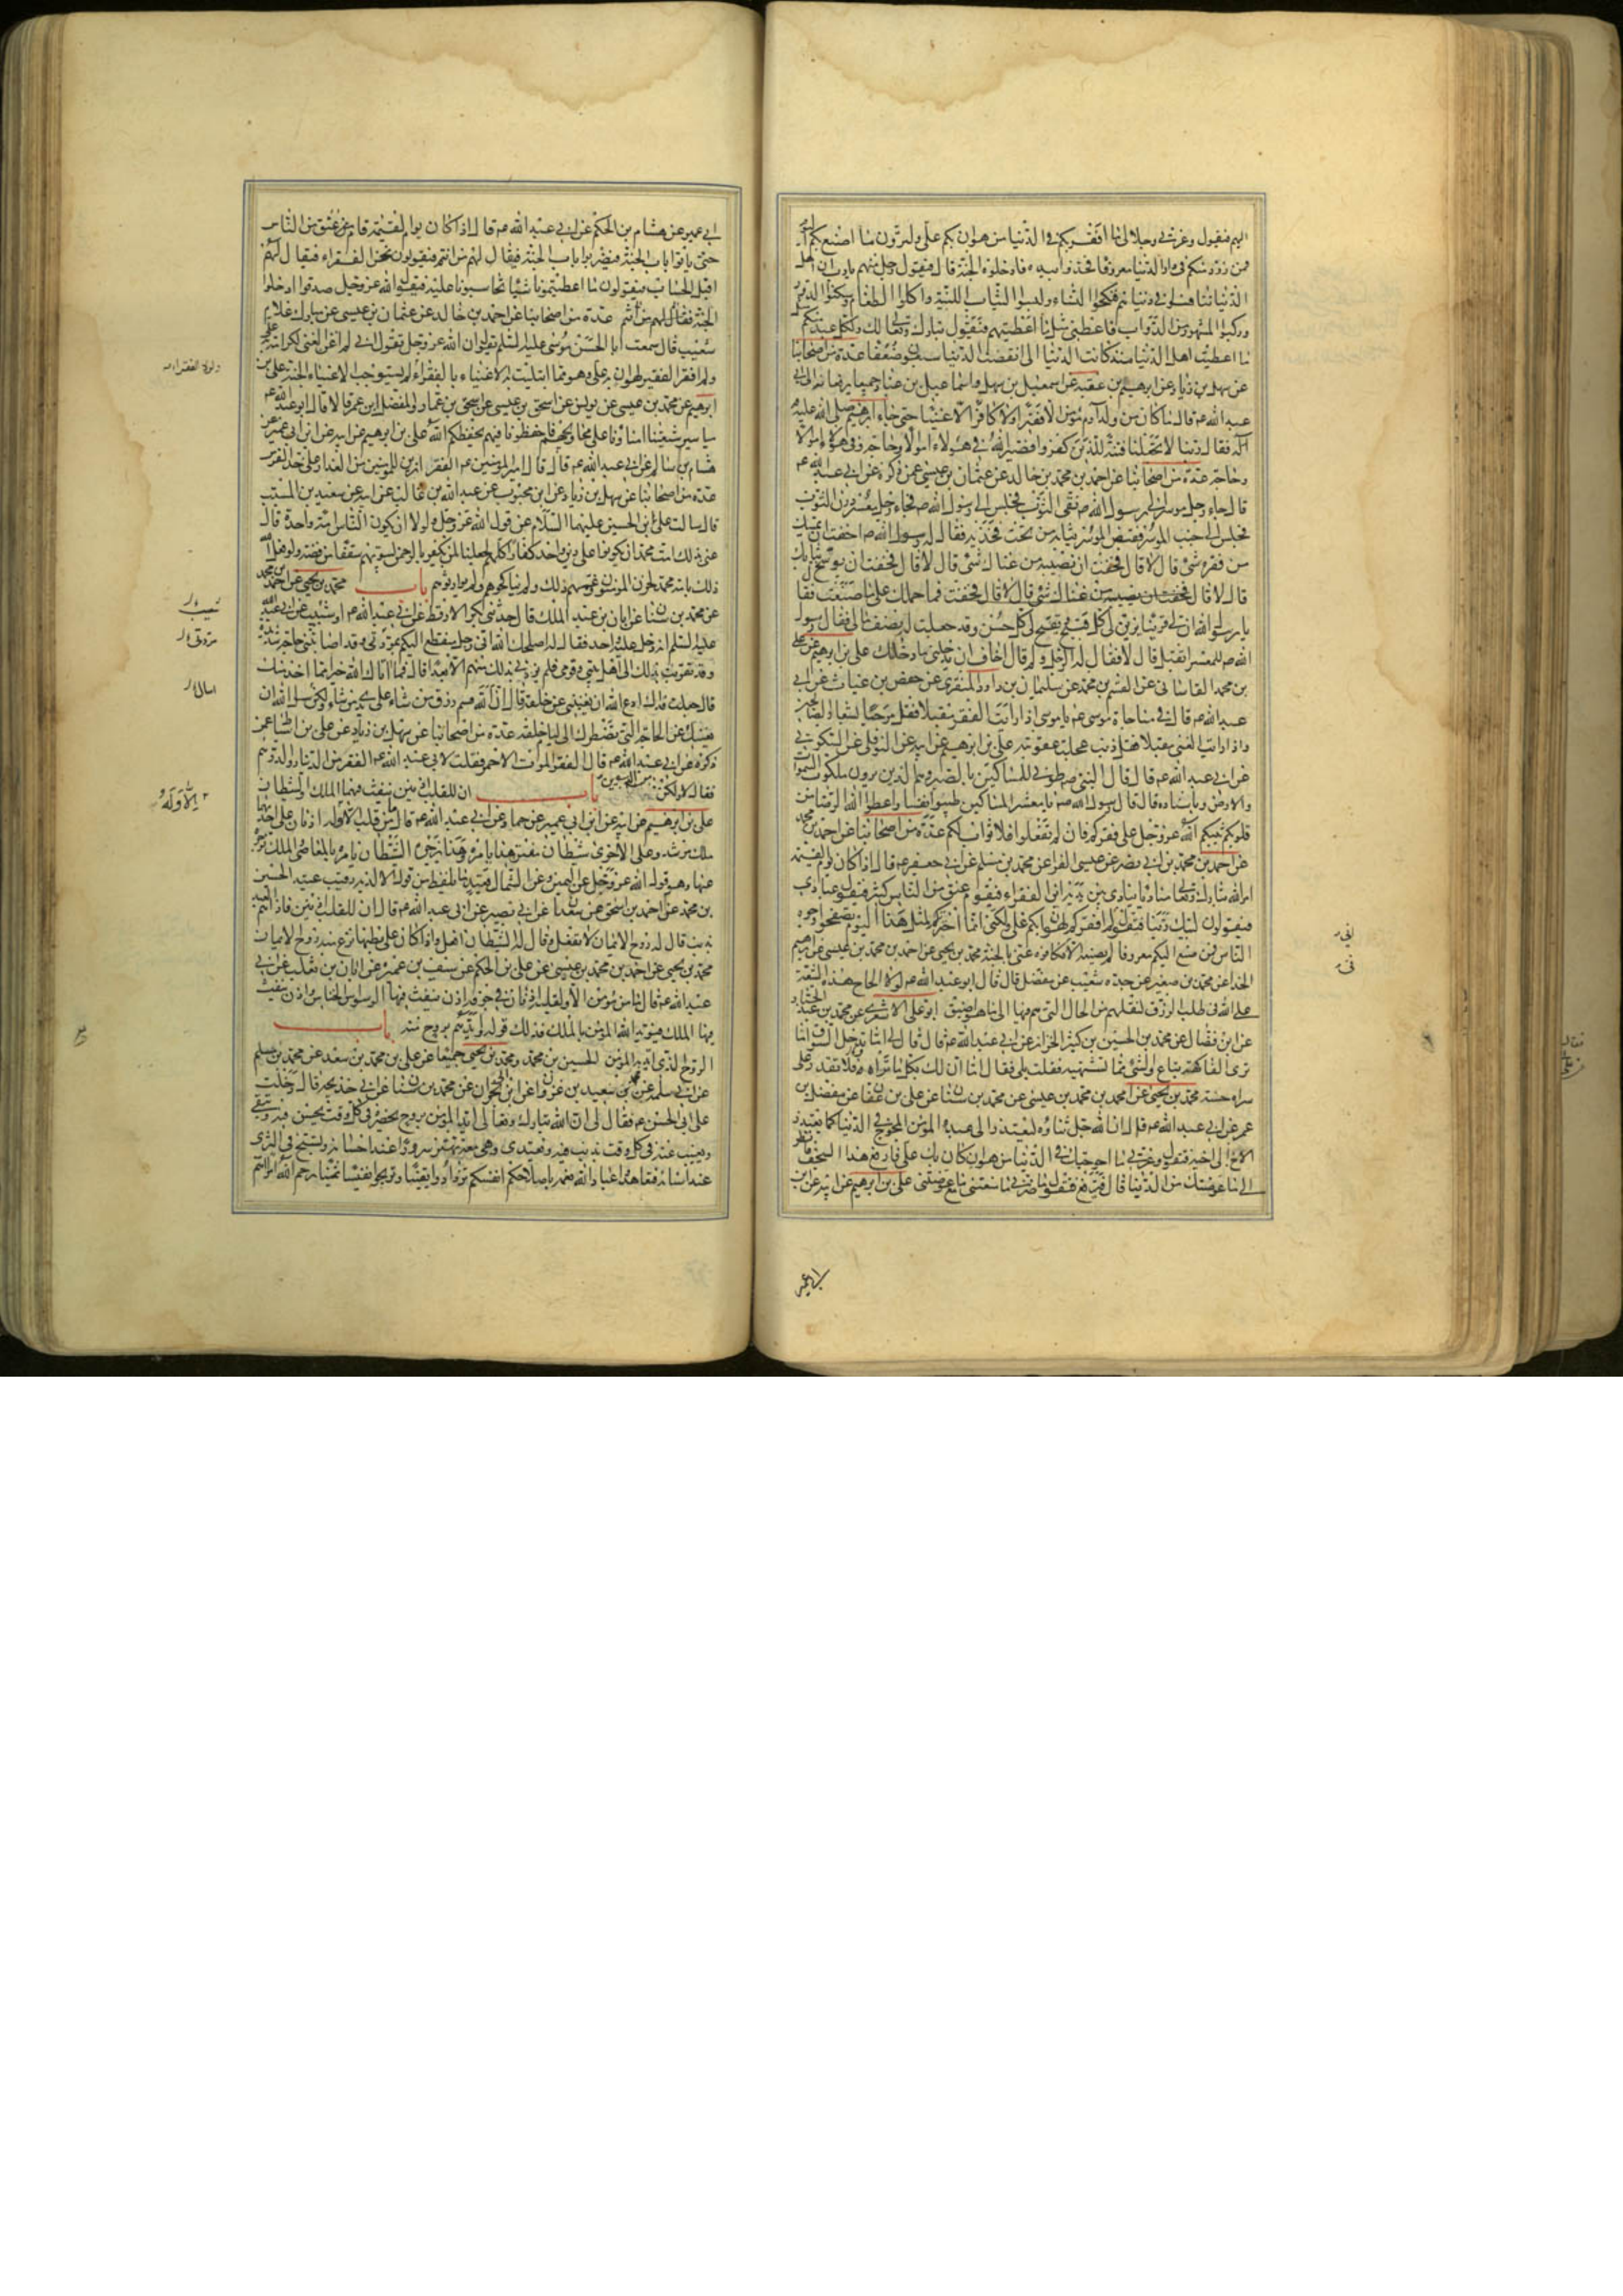 اليهم فيقول وعزتي وجلالي ما افقرتكم في الدنيا من هوان بكم علي ولترون ما اصنع بكم اليوم
فمن زود منكم في دار الدنيا معروفا فخذوا بيده فادخلوه الجنة قال فيقول رجل منهم يا رب ان اهل
الدنيا تنافسوا في دنياهم فنكحوا النساء ولبسوا الثياب اللينة واكلوا الطعام وسكنوا الدور
وركبوا المشهور من الدواب فاعطني مثل ما اعطيتهم فيقول تبارك وتعالى لك ولكل عبد منكم مثل
ما اعطيت اهل الدنيا منذ كانت الدنيا الى ان انقضت الدنيا سبعون ضعفا عدة من اصحابنا
عن سهل بن زياد عن ابراهيم بن عقبة عن اسمعيل بن سهل واسماعيل بن عباد جميعا يرفعانه الى ابي
عبد الله ع قال ما كان من ولد آدم مؤمن الا فقيرا ولا كافر الا غنيا حتى جاء ابراهيم صلى الله عليه
فقال ربنا لا تجعلنا فتنة للذين كفروا فصير الله في هؤلاء اموالا وحاجة وفي هؤلاء اموالا
وحاجة عدة من اصحابنا عن احمد بن محمد بن خالد عن عثمان بن عيسى عمن ذكره عن ابي عبد الله ع
قال جاء رجل موسر الى رسول الله ص نقي الثوب فجلس الى رسول الله ص فجاء رجل معسر درن الثوب
فجلس الى جنب الموسر فقبض الموسر ثيابه من تحت فخذيه فقال له رسول الله ص اخفت ان يمسك
من فقره شيء قال لا قال فخفت ان يصيبه من غناك شيء قال لا قال فخفت ان يوسخ ثيابك
قال لا قال فما حملك على ما صنعت فقا
يا رسول الله ان لي قرينا يزين لي كل قبيح ويقبح لي كل حسن وقد جعلت له نصف مالي فقال رسول
الله ص للمعسر اتقبل قال لا فقال له الرجل ولم قال اخاف ان يدخلني ما دخلك علي بن ابراهيم عن علي
بن محمد القاساني عن القسم بن محمد عن سليمان بن داود المنقري عن حفص بن غياث عن ابي
عبد الله ع قال في مناجاة موسى ع يا موسى اذا رايت الفقر مقبلا فقل مرحبا بشعار الصالحين
واذا رايت الغنى مقبلا فقل ذنب عجلت عقوبته علي بن ابراهيم عن ابيه عن النوفلي عن السكوني
عن ابي عبد الله ع قال قال النبي ص طوبى للمساكين بالصبر وهم الذين يرون ملكوت السموات
والارض وباسناده قال قال رسول الله ص يا معشر المساكين طيبوا نفسا واعطوا الله الرضا من
قلوبكم يثبكم الله عز وجل على فقركم فان لم تفعلوا فلا ثواب لكم عدة من اصحابنا عن احمد بن محمد
عن احمد بن محمد بن ابي نصر عن عيسى الفرا عن محمد بن مسلم عن ابي جعفر ع قال اذا كان يوم القيمة
امر الله تبارك وتعالى مناديا ينادي بين يديه اين الفقراء فيقوم عنق من الناس كثير فيقول عبادي
فيقولون لبيك ربنا فيقول لم افقركم لهوان بكم علي ولكني انما اخترتكم لمثل هذا اليوم تصفحوا وجوه
الناس فمن صنع اليكم معروفا لم يصنعه الا في فكافوه عني بالجنة محمد بن يحيى عن احمد بن محمد بن عيسى عن ابراهيم
الحذا عن محمد بن صغير عن جده شعيب عن مفضل قال قال ابو عبد الله ع لولا الحاح هذه الشيعة
على الله في طلب الرزق لنقلهم من الحال التي هم فيها الى ما هو اضيق ابو علي الاشعري عن محمد بن عبد الجبار
عن ابن فضال عن محمد بن الحسين بن كثير الخزاز عن ابي عبد الله ع قال قال لي اما تدخل السوق اما
ترى الفاكهة تباع والشيء مما تشتهيه فقلت بلى فقال اما ان لك بكل ما تراه فلا تقدر على
شراه حسنة محمد بن يحيى عن احمد بن محمد بن عيسى عن محمد بن سنان عن علي بن عفان عن مفضل بن
عمر عن ابي عبد الله ع قال ان الله جل ثناؤه ليعتذر الى عبده المؤمن المحوج في الدنيا كما يعتذر
الاخ الى اخيه فيقول وعزتي ما احوجتك في الدنيا من هوان كان بك علي فارفع هذا السجف فانظر
الى ما عوضتك من الدنيا قال فيرفع فيقول ما ضرني ما منعتني مع ما عوضتني علي بن ابراهيم عن ابيه عن ابن
ابي عمير
ابي عمير عن هشام بن الحكم عن ابي عبد الله ع قال اذا كان يوم القيمة قام عنق من الناس
حتى ياتوا باب الجنة فيضربوا باب الجنة فيقال لهم من انتم فيقولون نحن الفقراء فيقال لهم
اقبل الحساب فيقولون ما اعطيتمونا شيئا تحاسبونا عليه فيقول الله عز وجل صدقوا ادخلوا
الجنة عدة من اصحابنا عن احمد بن خالد عن عثمان بن عيسى عن مبارك غلام
شعيب قال سمعت ابا الحسن موسى عليه السلم يقول ان الله عز وجل يقول اني لم اغن الغني لكرامة به علي
ولم افقر الفقير لهوان به علي وهو مما ابتليت به الاغنياء بالفقراء لم يستوجب الاغنياء الجنة علي بن
ابراهيم عن محمد بن عيسى عن يونس عن اسحق بن عيسى عن اسحق بن عمار والمفضل ابن عمر قالا قال ابو عبد الله ع
مياسير شيعتنا امناؤنا على محاويجهم فاحفظونا فيهم يحفظكم الله علي بن ابراهيم عن ابيه عن ابن ابي عمير عن
هشام بن سالم عن ابي عبد الله ع قال قال امير المؤمنين ع الفقر ازين للمؤمنين من العذار على خد الفرس
عدة من اصحابنا عن سهل بن زياد عن ابن محبوب عن عبد الله بن غالب عن ابيه عن سعيد بن المسيب
قال سالت علي ابن الحسين عليهما السلام عن قول الله عز وجل ولولا ان يكون الناس امة واحدة قال
عنى بذلك امة محمد ان يكونوا على دين واحد كفارا كلهم لجعلنا لمن يكفر بالرحمن لبيوتهم سقفا من فضة ولو فعل الله
ذلك بامة محمد لحزن المؤمنون وغمهم ذلك ولم يناكحوهم ولم يوارثوهم باب محمد بن يحيى عن احمد بن محمد
عن محمد بن سنان عن ابان بن عبد الملك قال حدثني بكر الارقط عن ابي عبد الله ع او شعيب عن ابي عبد الله
عليه السلم انه دخل عليه واحد فقال له اصلحك الله اني رجل منقطع اليكم بمودتي وقد اصابتني حاجة شديدة
وقد تقربت بذلك الى اهل بيتي وقومي فلم يزدني بذلك منهم الا بعدا قال فما اتاك الله خير مما اخذ منك
قال جعلت فداك ادع الله ان يغنيني عن خلقه قال ان الله قسم رزق من شاء على يدي من شاء ولكن سل الله ان
يغنيك عن الحاجة التي تضطرك الى لئام خلقه عدة من اصحابنا عن سهل بن زياد عن علي بن اسباط عمن
ذكره عن ابي عبد الله ع قال الفقر الموت الاحمر فقلت لابي عبد الله ع الفقر من الدينار والدرهم
فقال لا ولكن من الدين باب ان للقلب اذنين ينفث فيهما الملك والشيطان
علي بن ابراهيم عن ابيه عن ابن ابي عمير عن حماد عن ابي عبد الله ع قال ما من قلب الا وله اذنان على احديهما
ملك مرشد وعلى الاخرى شيطان مفتن هذا يامره وهذا يزجره الشيطان يامره بالمعاصي والملك يزجره
عنها وهو قول الله عز وجل عن اليمين وعن الشمال قعيد ما يلفظ من قول الا لديه رقيب عتيد الحسين
بن محمد عن احمد بن اسحق عن سعدان عن ابي بصير عن ابي عبد الله ع قال ان للقلب اذنين فاذا هم العبد
بذنب قال له روح الايمان لا تفعل وقال له الشيطان افعل واذا كان على بطنها نزع منه روح الايمان
محمد بن يحيى عن احمد بن محمد بن عيسى عن علي بن الحكم عن سيف بن عميرة عن ابان بن تغلب عن ابي
عبد الله ع قال ما من مؤمن الا ولقلبه اذنان في جوفه اذن ينفث فيها الوسواس الخناس واذن ينفث
فيها الملك فيؤيد الله المؤمن بالملك فذلك قوله وايدهم بروح منه باب
الروح الذي ايد به المؤمن الحسين بن محمد ومحمد بن يحيى جميعا عن علي بن محمد بن سعد عن محمد بن مسلم
عن ابي سلمة عن محمد بن سعيد بن غزوان عن ابن ابي نجران عن محمد بن سنان عن ابي خديجة قال دخلت
على ابي الحسن ع فقال لي ان الله تبارك وتعالى ايد المؤمن بروح تحضره في كل وقت يحسن فيه ويتقي
وتغيب عنه في كل وقت يذنب فيه ويعتدي وهي معه تهتز سرورا عند احسانه وتسيخ في الثرى
عند اساءته فتعاهدوا عباد الله نعمه باصلاحكم انفسكم تزدادوا يقينا وتربحوا نفيسا ثمينا رحم الله امرا هم